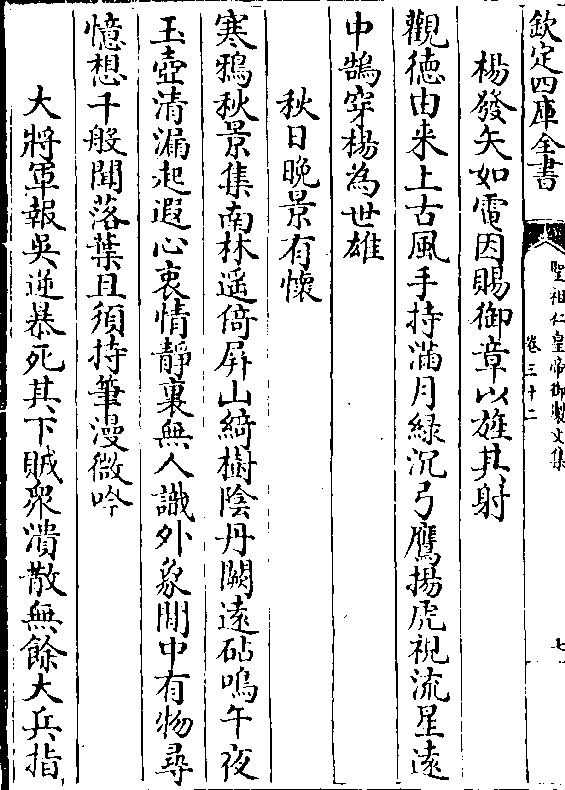 欽定四庫全書
聖祖仁皇帝御製文集
卷三十二
七
楊發矢如電因賜御章以旌其射
觀徳由来上古風手持滿月緑沉弓鷹揚虎視流星遠
中鵠穿楊為世雄
秋日晚景有懷
寒鴉秋景集南林遥倚屏山綺樹陰丹闕遠砧鳴午夜
玉壺清漏起遐心衷情靜裏無人識外象閒中有物尋
憶想千般聞落葉且須持筆漫微吟
大將軍報吳逆暴死其下賊衆潰散無餘大兵指